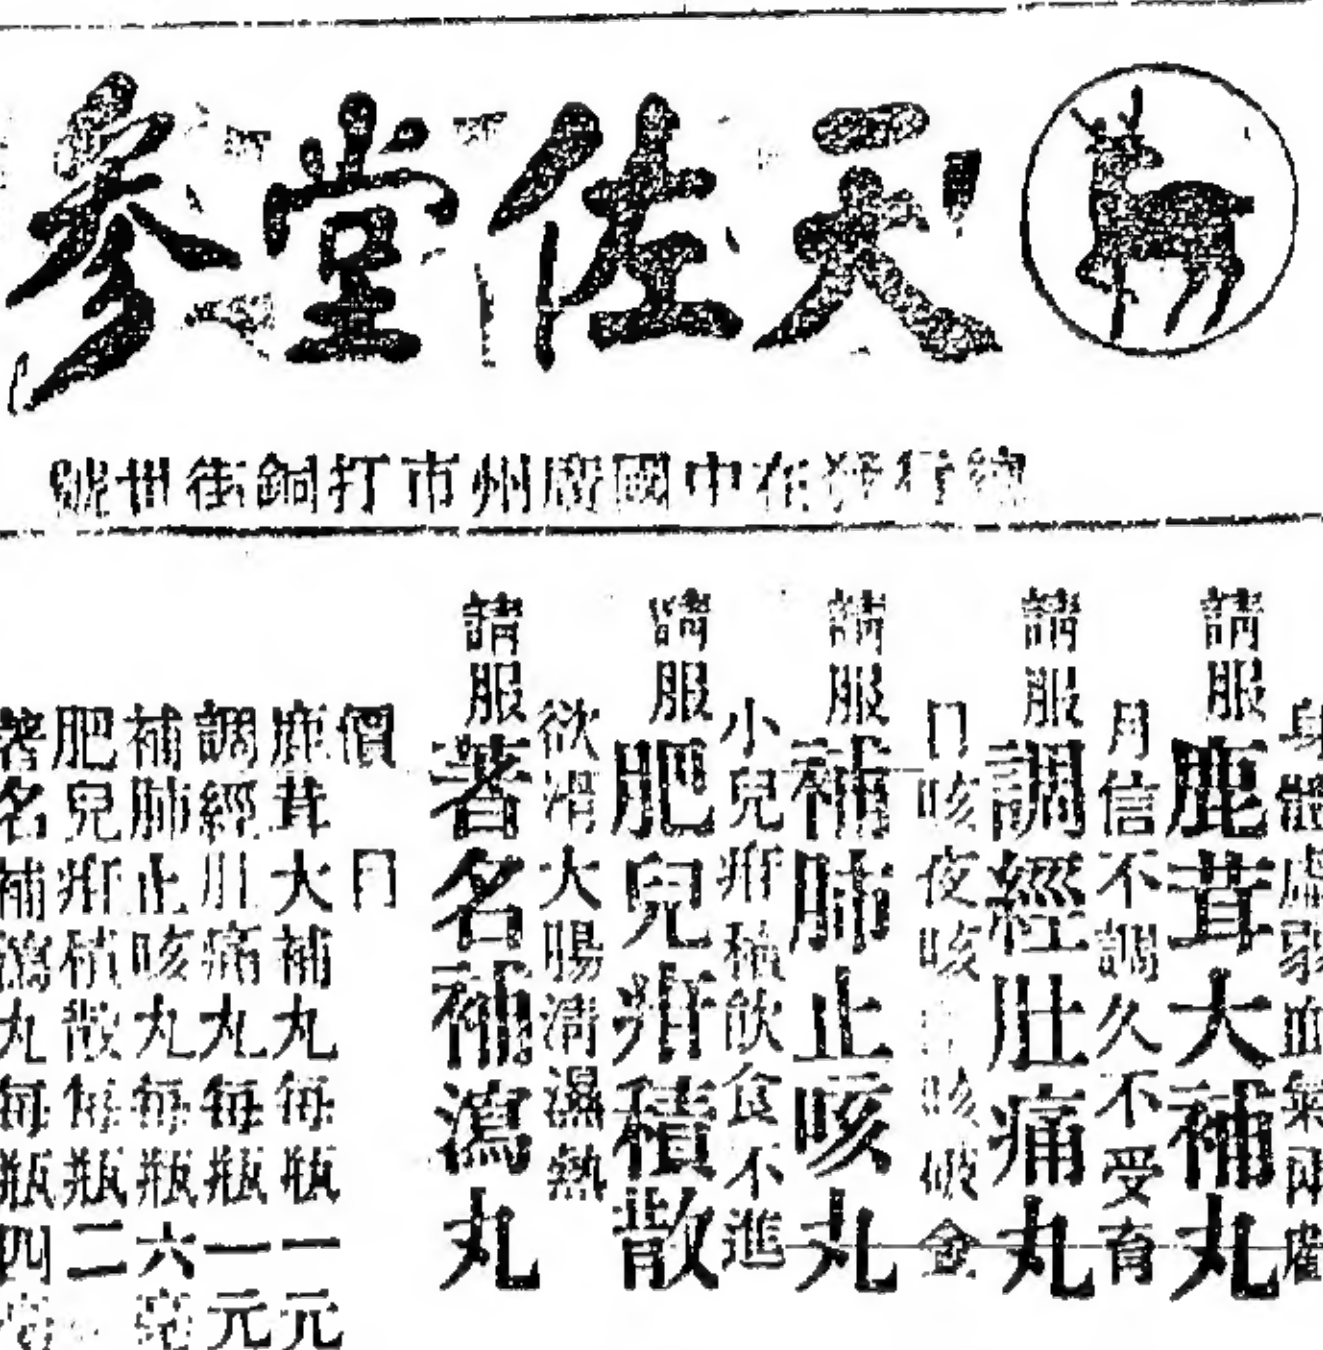 天佐堂參
總行發在中國廣州市打銅街卅號
身體虛弱血氣兩虧
請服鹿茸大補丸
月信不調久不受育
請服調經肚痛丸
日咳夜咳咳破金
請服補肺止咳丸
小兒疳積飲食不進
請服肥兒疳積散
欲潤大腸淸濕熱
請服著名補瀉丸
價目
鹿茸大補丸每瓶一元
調經川痛丸每瓶一元
補肺止咳丸每瓶六毫
肥兒疳積散每瓶二
著名補瀉丸每瓶四毫